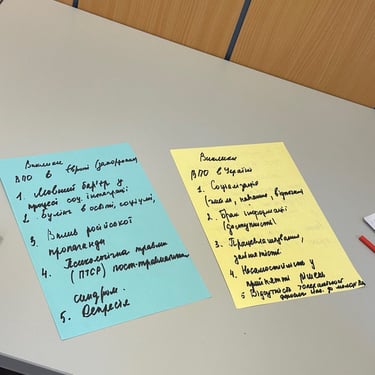 Виклики
ВПО в Європі (закордоном)
1. Мовний бар'єр у
процесі соц. інтеграції;
2. Булінг в освіті, соціумі;
3. Вплив російської
пропаганди
4. Психологічна травма
(ПТСР) пост-травматичний
синдром.
5. Депресія
Виклики
ВПО в Україні
1. Соціалізація
2. Брак інформації
(доступності)
3. Працевлаштування,
зайнятість
4. Несамостійність у
прийнятті рішень
5 Відсутність